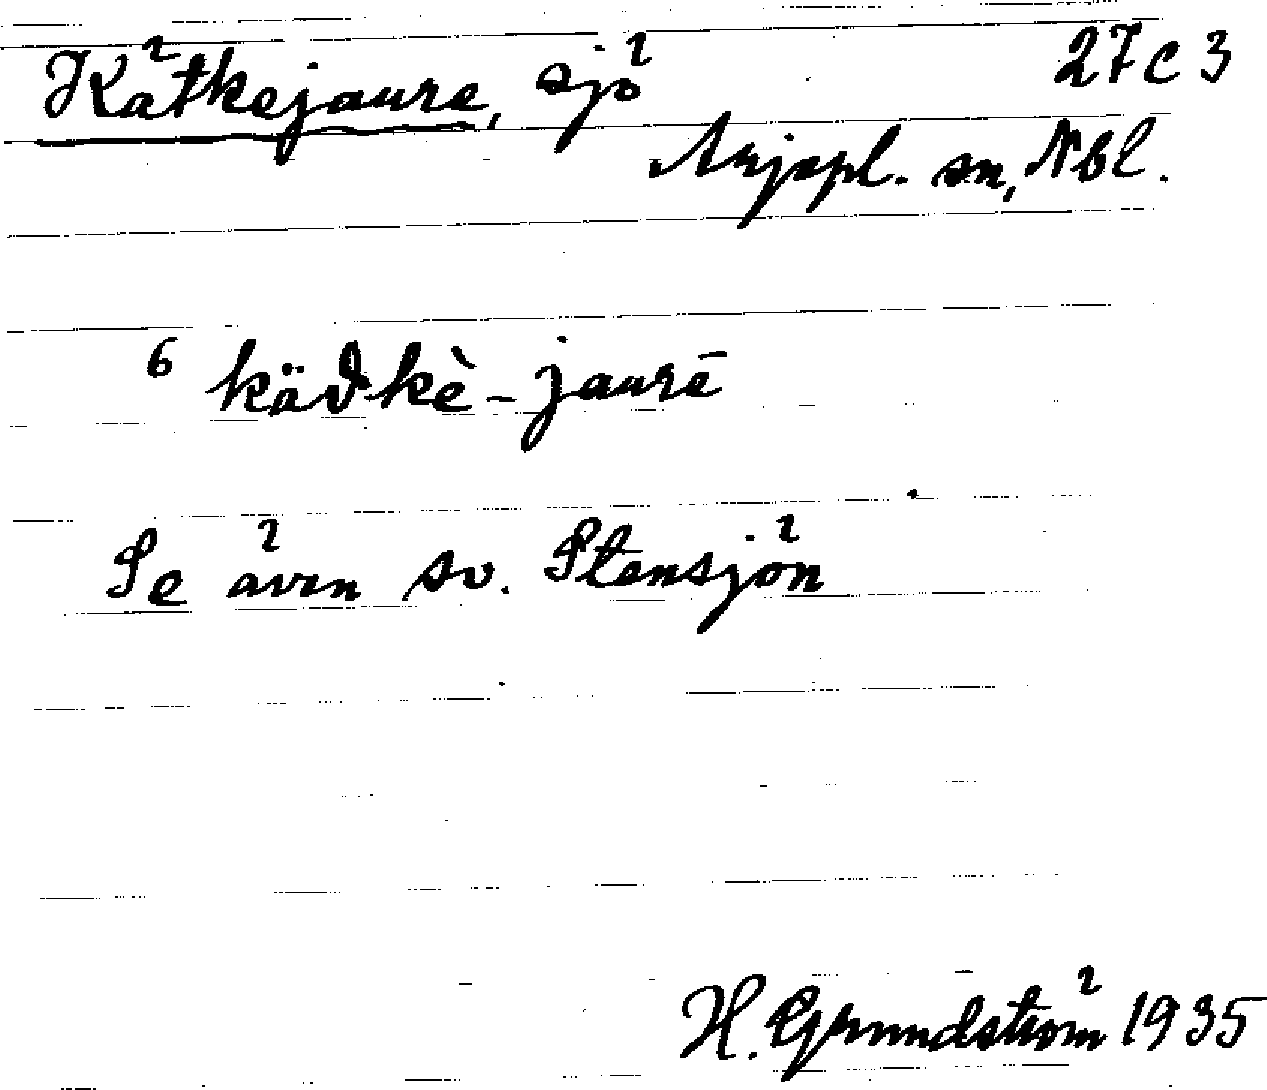 Kätkejaure, sjö 27c3
Arjepl. sn, Nbl.
6 käδ̀kè-jaurē
Se även sv. Stensjön
H. Grundström 1935